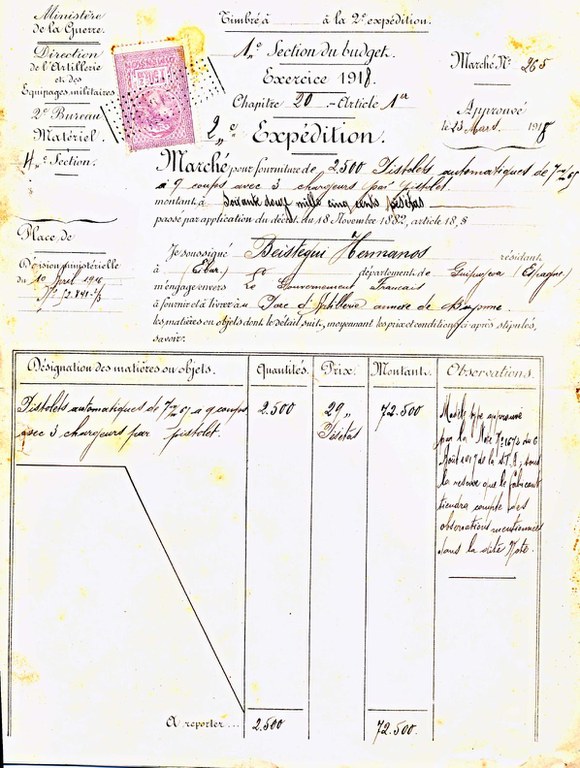 Ministère
de la Guerre.
Direction
de l'Artillerie
et des
Equipages militaires
2e Bureau
Matériel.
4e Section.
Place de
Décision ministérielle
du 10 Avril 1916
Timbré à à la 2e expédition.
1re Section du budget.
Exercice 1918.
Chapitre 20 - Article 1er
2e Expédition.
Marché No 265
Approuvé
le 23 Mars 1918
Marché pour fourniture de 2500 Pistolets automatiques de 7m/65
à 9 coups avec 3 chargeurs par pistolet.
montant à soixante douze mille cinq cents pesetas
passé par application du décret du 18 Novembre 1882, article 18, §
Je soussigné Beistegui Hermanos résidant
à Eibar département de Guipuzcoa (Espagne)
m'engage envers Le Gouvernement Français
à fournir et à livrer au Parc d'Artillerie annexe de Bayonne
les matières ou objets dont le détail suit, moyennant les prix et conditions ci-après stipulés,
savoir:
Désignation des matières ou objets. Quantités. Prix. Montant. Observations.
Pistolets automatiques de 7m/65 à 9 coups 2.500 29 „ 72.500
avec 3 chargeurs par pistolet. Pesetas
Modèle type approuvé
par la Note No 1674 du 6
Août 1917 de la S.T.A., sous
la réserve que le fabricant
tiendra compte des
observations mentionnées
dans la dite Note.
A reporter ... 2.500 72.500.